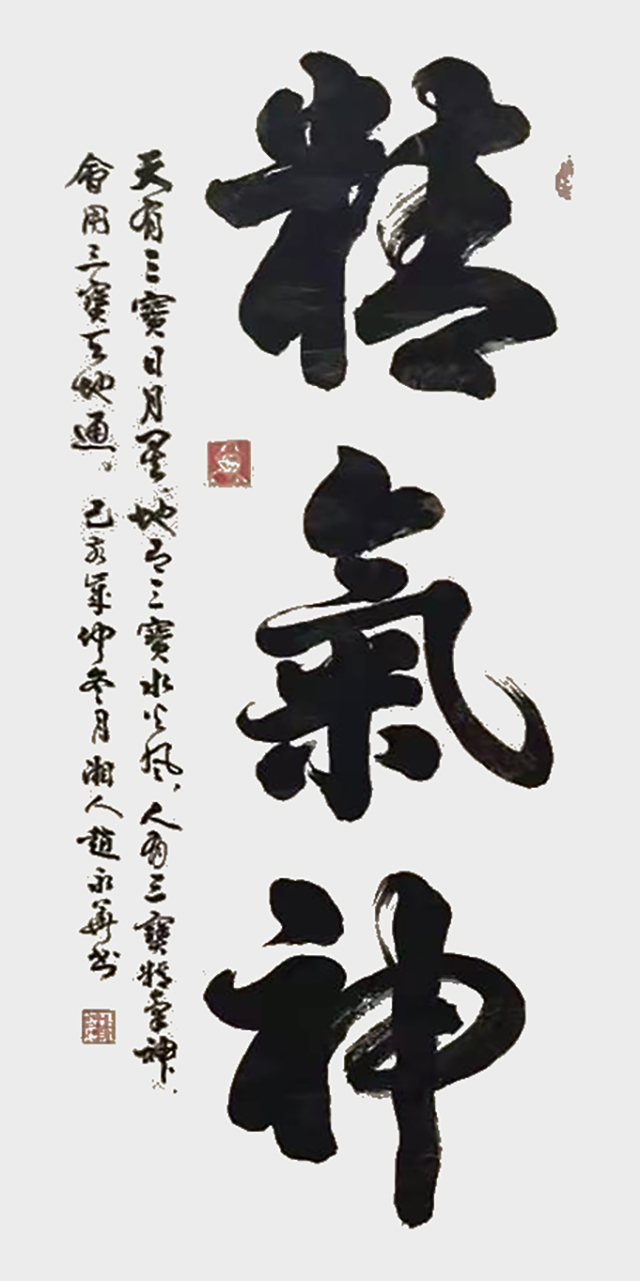 精氣神
天有三寶日月星、地有三寶水火風、人有三寶精氣神、
會用三寶天地通。己亥歲仲冬月湘人趙永華书